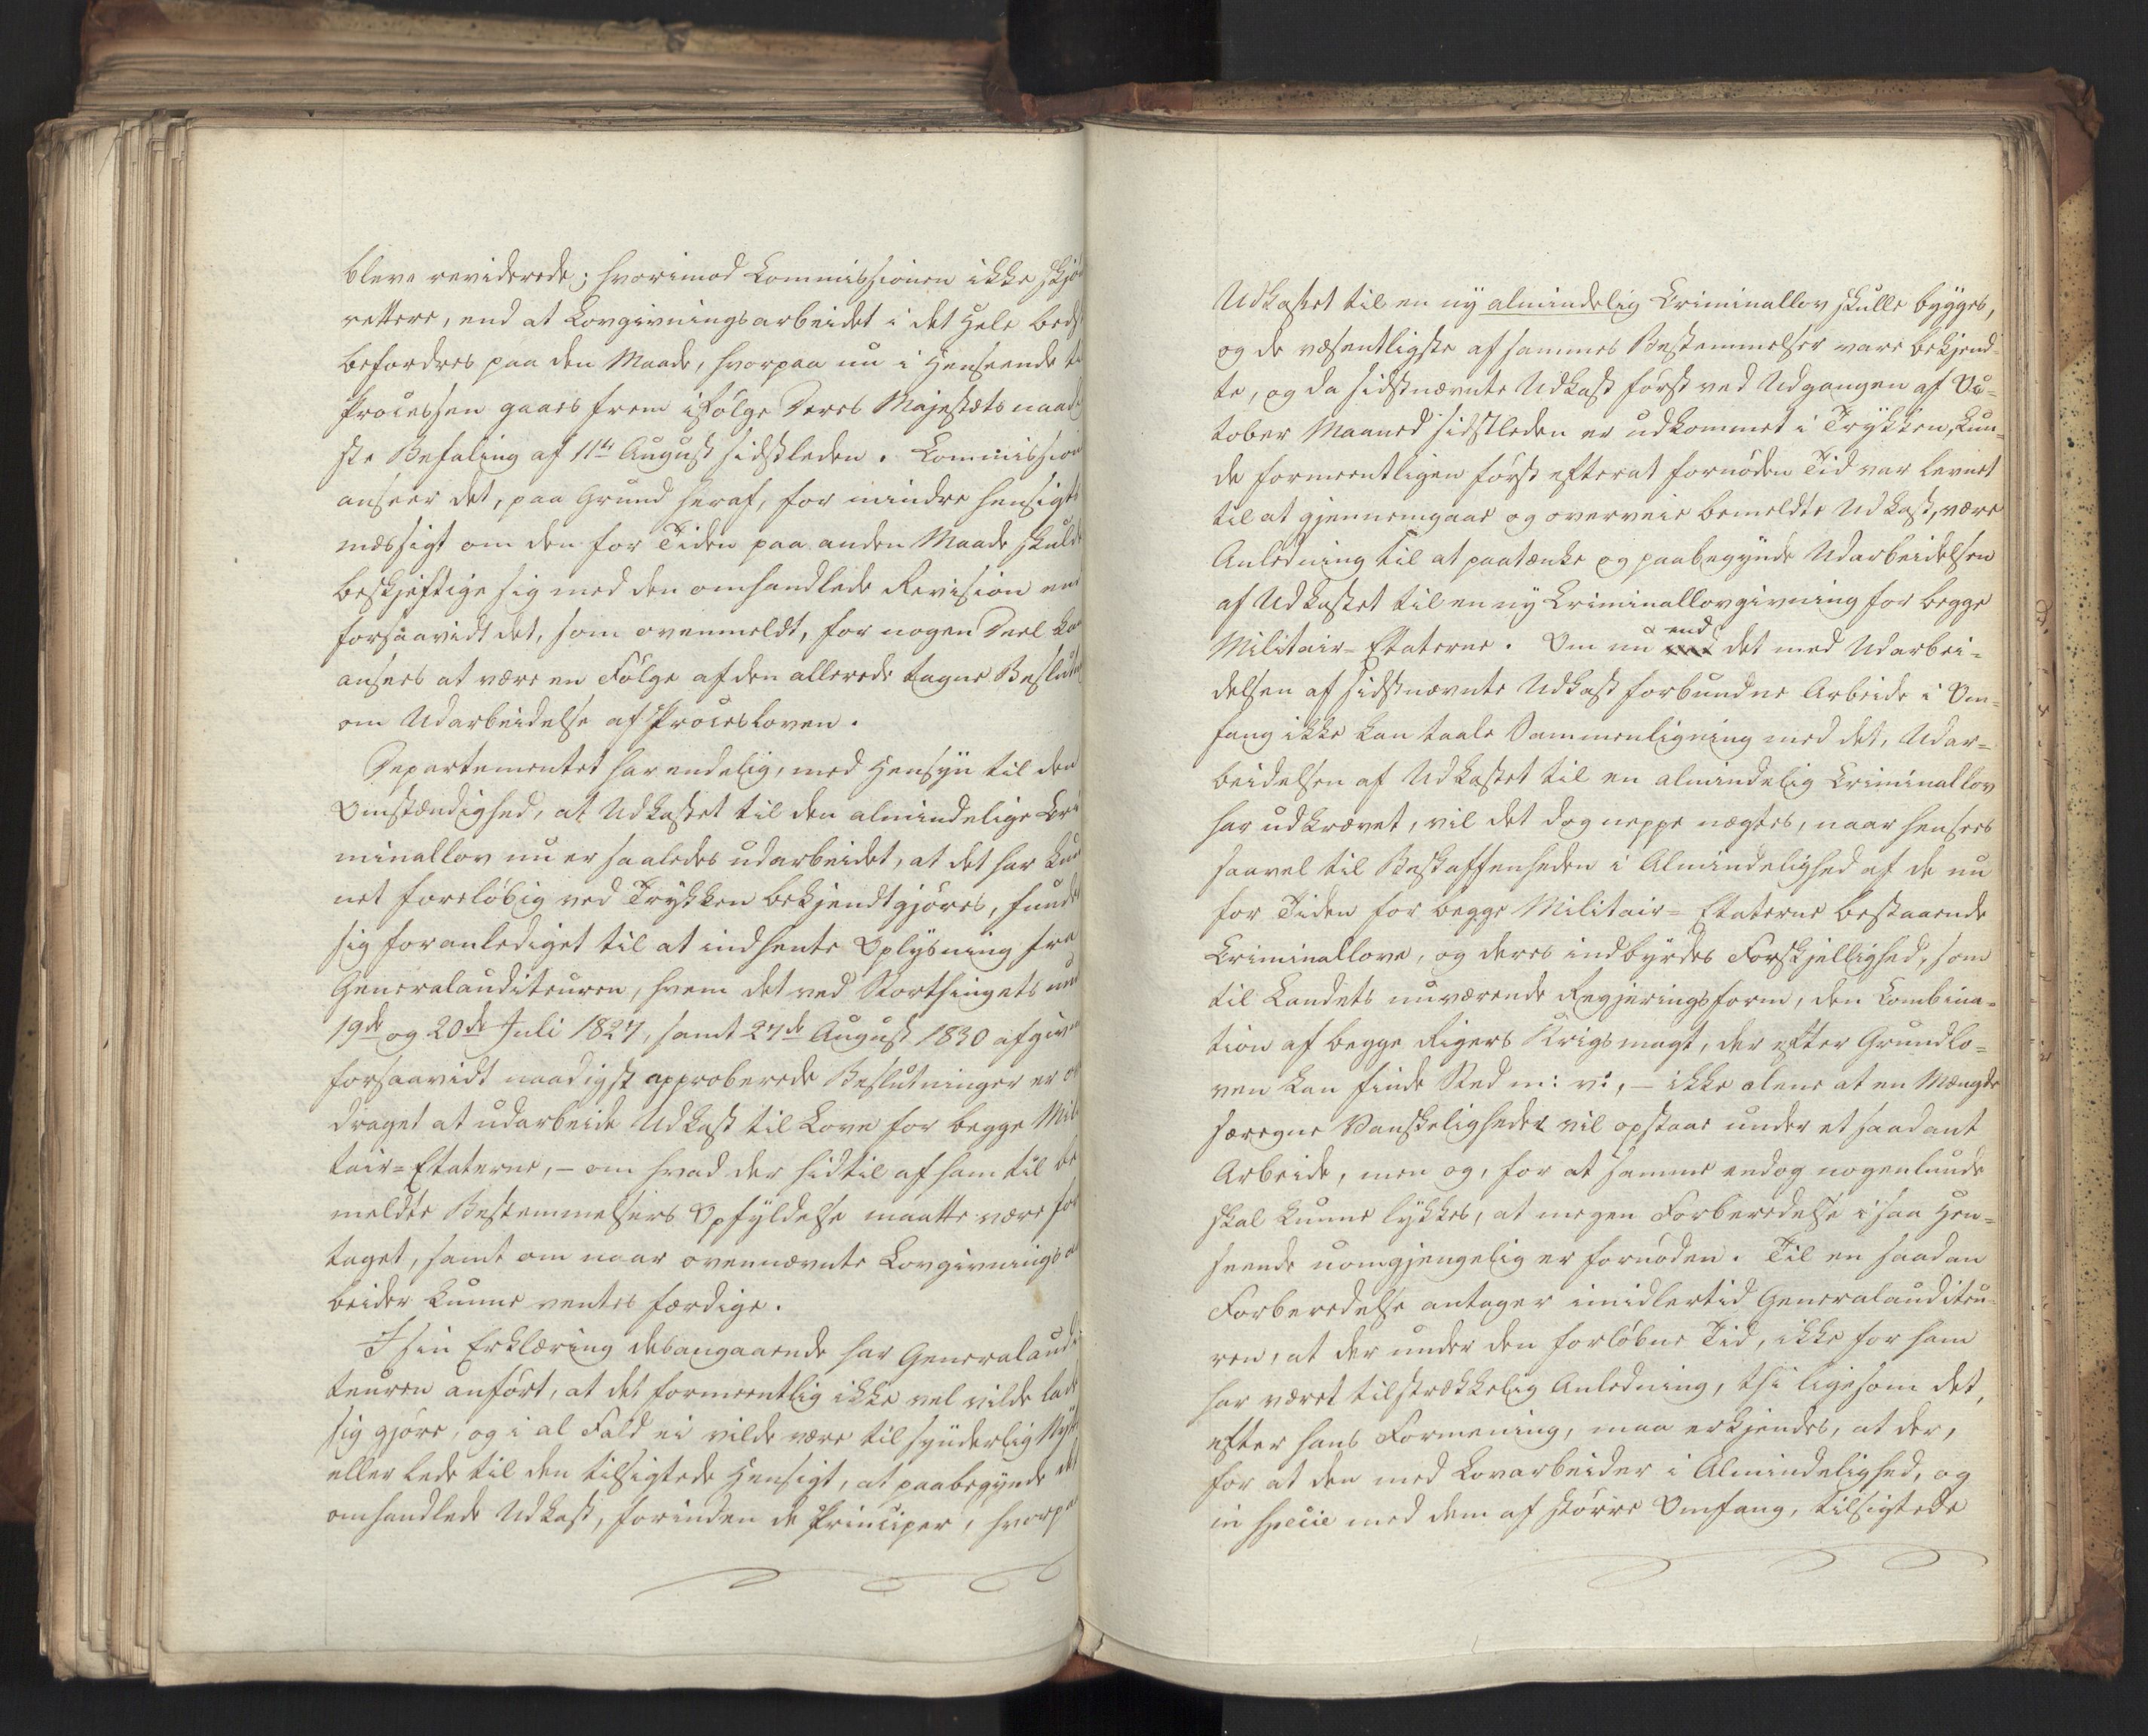 bleve reviderede; hvorimod Commissionen ikke skjø
rettere, end at Lovgivningsarbeidet i det Hele beds
befordres paa den Maade, hvorpaa nu i Henseende t
Processen gaaes frem ifølge Deres Majestæts naad
ste Befaling af 11te August sidstleden. Commission
anseer det, paa Grund heraf, for mindre hensigts
mæssigt om den for Tiden paa anden Maade skuld
beskjeftige sig med den omhandlede Revision end
forsaavidt det, som ovenmeldt, for nogen Deel kan
ansees at være en Følge af den allerede tagne Beslut
om Udarbeidelse af Procesloven.
Departementet har endelig, med Hensyn til den
Omstændighed, at Udkastet til den almindelige Cri
minallov nu er saaledes udarbeidet, at det har kun
net foreløbig ved Trykken bekjendtgjøres, funde
sig foranlediget til at indhente Oplysning fra
Generalauditeuren, hvem det ved Storthingets und
19de og 20de Juli 1827, samt 27de August 1830 afgivn
forsaavidt naadigst approberede Beslutninger er o
draget at udarbeide Udkast til Love for begge Mili
tair=Etaterne, – om hvad der hidtil af ham til be
meldte Bestemmelsers Opfyldelse maatte være for
taget, samt om naar ovennævnte Lovgivnings a
beider kunne ventes færdige.
I sin Erklæring desangaaende har Generalaudi
teuren anført, at det formeentlig ikke vel vilde lade
sig gjøre, og i al Fald ei vilde være til synderlig Nytt
eller lede til den tilsigtede Hensigt, at paabegynde det
omhandlede Udkast, forinden de Principer, hvorpa
Udkastet til en ny almindelig Criminallov skulle bygges,
og de væsentligste af sammes Bestemmelser vare bekjend=
te, og da sidstnævnte Udkast først ved Udgangen af Oc=
tober Maaned sidstleden er udkommet i Trykken, kun=
de formeentligen først efterat fornøden Tid var levnet
til at gjennemgaae og overveie bemeldte Udkast, være
Anledning til at paatænke og paabegynde Udarbeidelsen
af Udkastet til en ny Criminallovgivning for begge
Militair=Etaterne. Om nu end det med Udarbei=
delsen af sidstnævnte Udkast forbundne Arbeide i Om=
fang ikke kan taale Sammenligning med det, Udar=
beidelsen af Udkastet til en almindelig Criminallov
har udkrævet, vil det dog neppe nægtes, naar hensees
saavel til Beskaffenheden i Almindelighed af de nu
for Tiden for begge Militair=Etaterne bestaaende
Criminallove, og deres indbyrdes Forskjellighed, som
til Landets nuværende Regjeringsform, den Combina=
tion af begge Rigers Krigsmagt, der efter Grundlo=
ven kan finde Sted m: v:, – ikke alene at en Mængde
særegne Vanskeligheder vil opstaae under et saadant
Arbeide, men og, for at samme endog nogenlunde
skal kunne lykkes, at megen Forberedelse i saa Hen=
seende uomgjengelig er fornøden. Til en saadan
Forberedelse antager imidlertid Generalauditeu=
ren, at der under den forløbne Tid, ikke for ham
har været tilstrækkelig Anledning, thi ligesom det,
efter hans Formening, maa erkjendes, at der,
for at den med Lovarbeider i Almindelighed, og
in specie med dem af større Omfang, tilsigtede